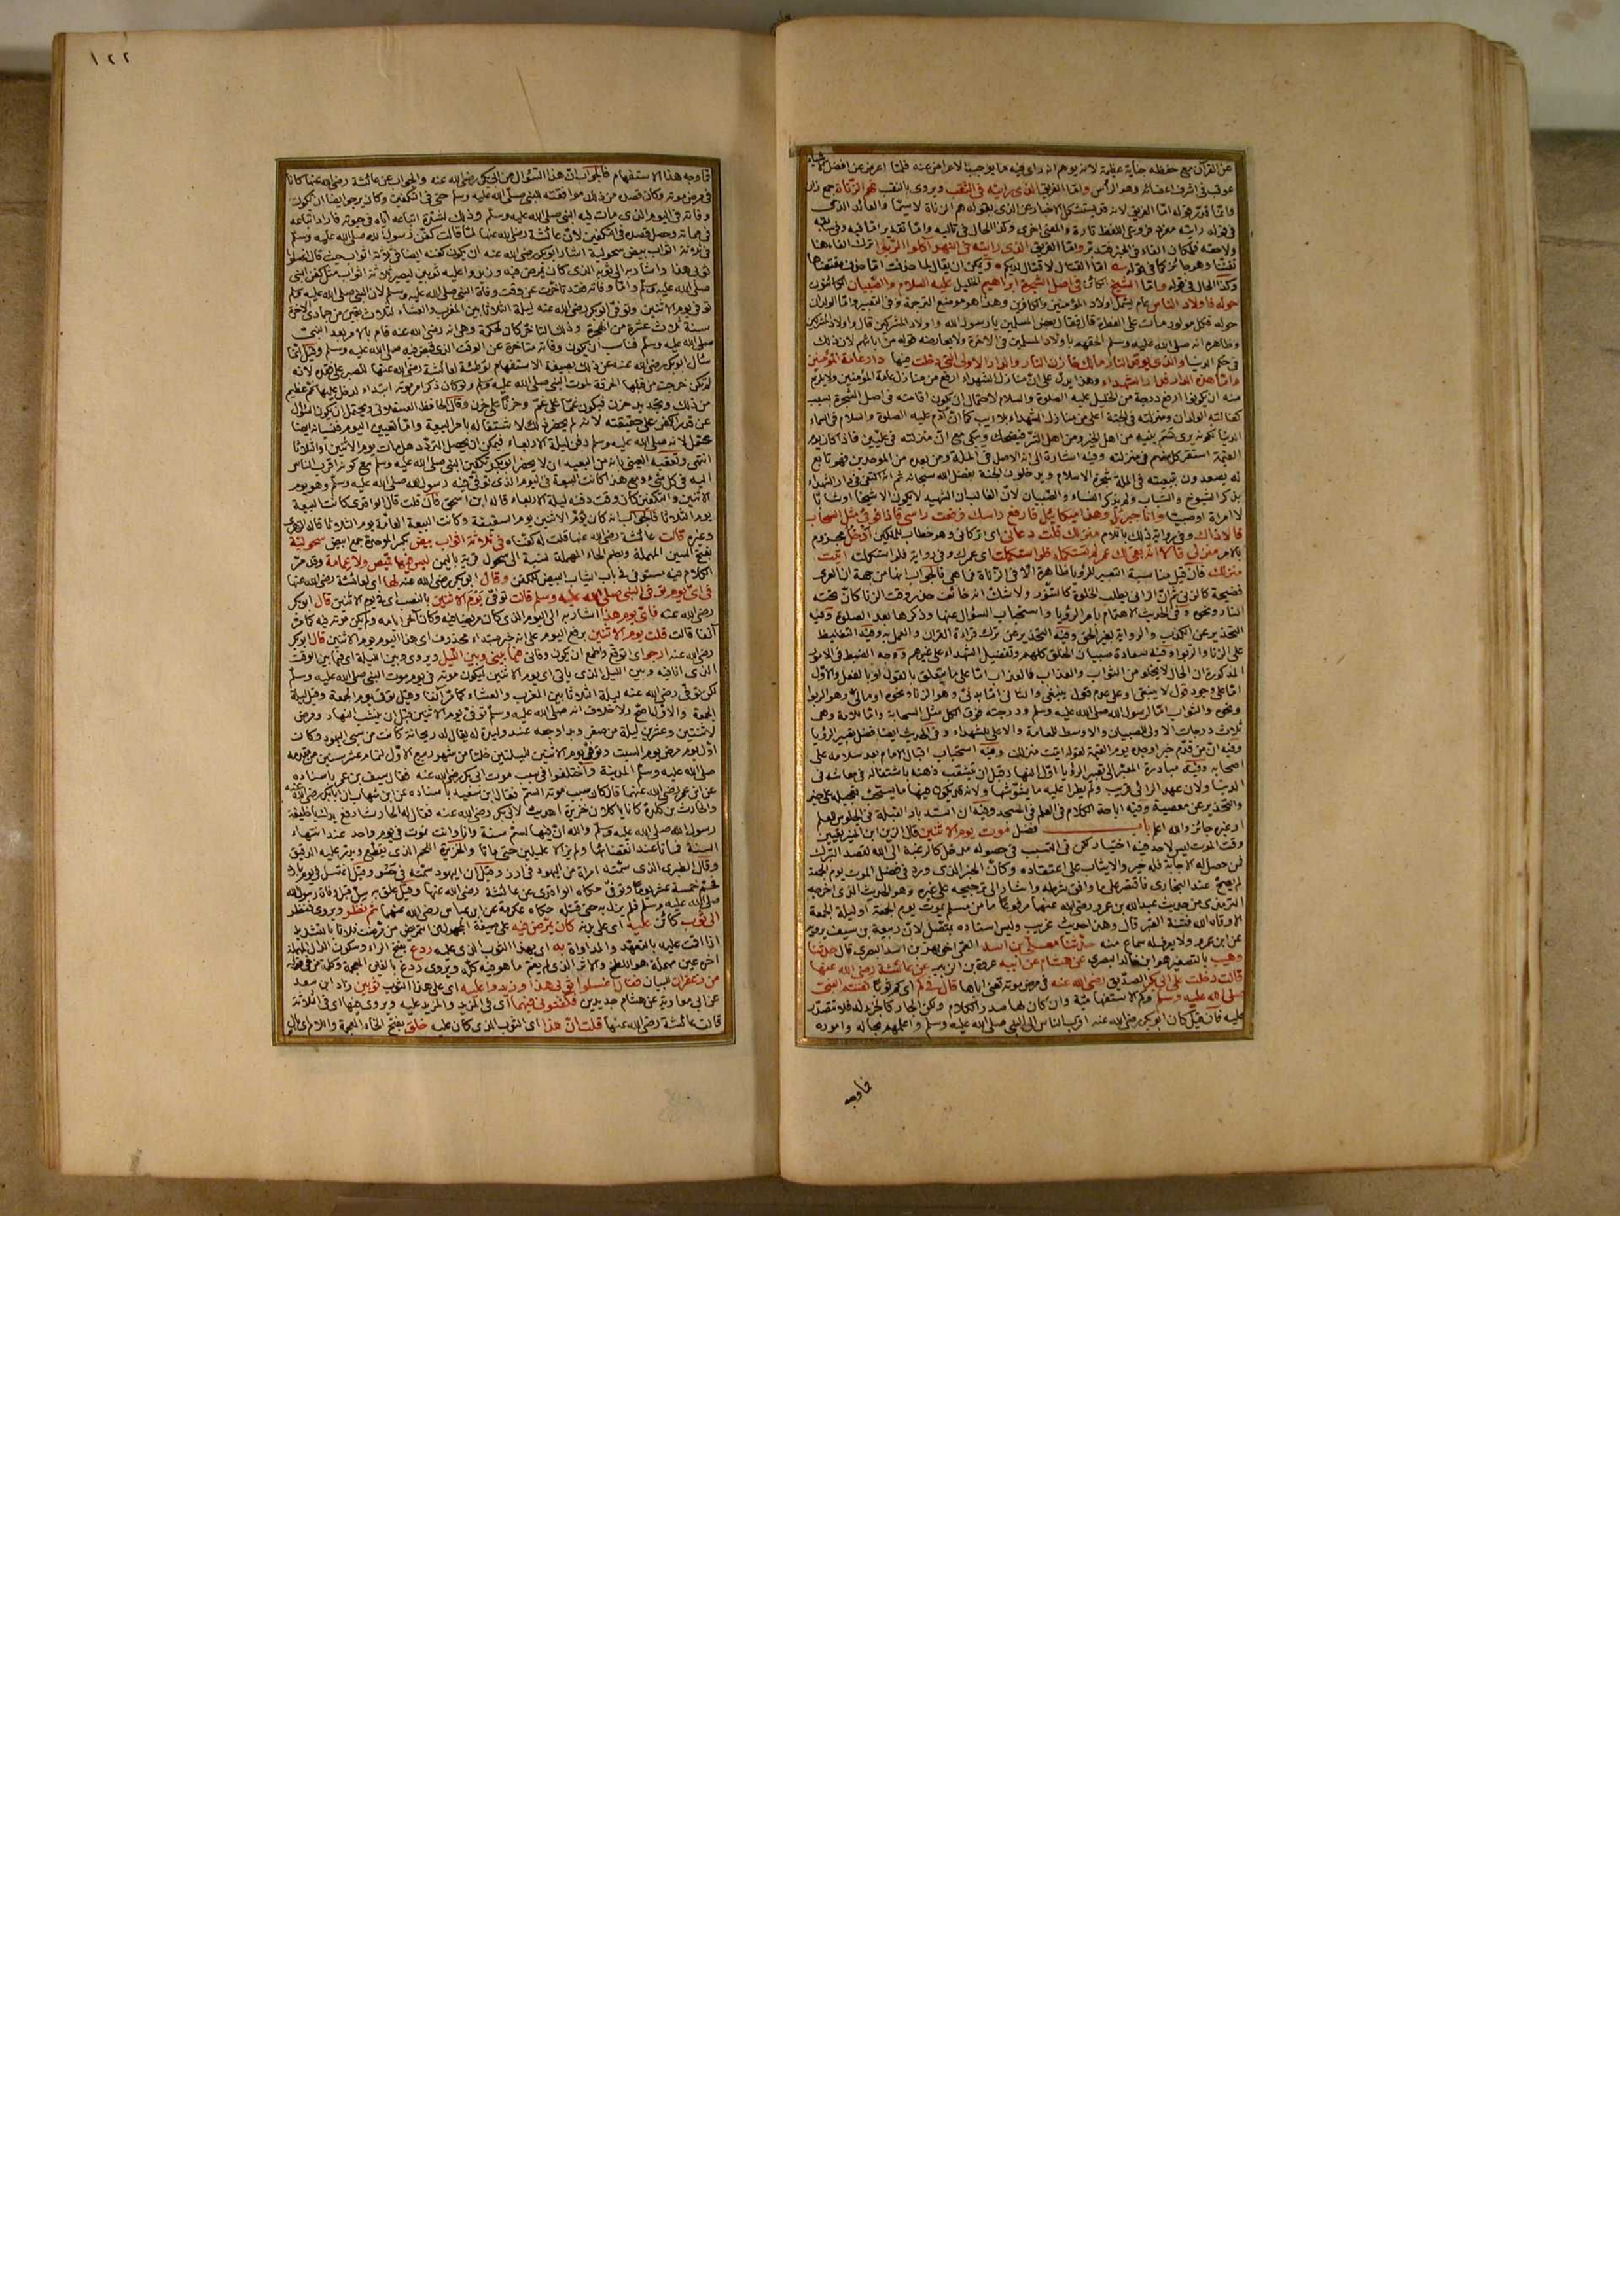 عن القرآن مع حفظه جناية عظيمة لانه يوهم انه راى فيه ما يوجب الاعراض عنه فلما اعرض عن افضل الاشياء
عوقب في اشرف اعضائه وهو الرأس واما الفريق الذي رايته في الثقب ويروى بالنقب فهم الزناة جمع زان
وانما قدر قوله اما الفريق لانه قد يستشكل الاخبار عن الذي بقوله هم الزناة لاسيما والعائد الذي
في قوله رايته مفرد فروعي اللفظ تارة والمعنى اخرى وكذا الحال في
والذي رايته في النهر آكلوا الربوا
وكذا الحال في قوله واما الشيخ الكائن في اصل الشجرة ابراهيم الخليل عليه السلام والصبيان الكائنون
حوله فاولاد الناس عام يشمل اولاد المؤمنين والكافرين وهذا هو موضع الترجمة وفي التعبير واما الولدان
حوله فكل مولود مات على الفطرة قال فقال بعض المسلمين يا رسول الله واولاد المشركين قال واولاد المشركين
وظاهره انه صلى الله عليه وسلم الحقهم باولاد المسلمين في الآخرة ولا يعارضه قوله من آبائهم لان ذلك
في حكم الدنيا والذي يوقد النار مالك خازن النار والدار الاولى التي دخلت فيها دار عامة المؤمنين
واما هذه الدار فدار الشهداء وهذا يدل على ان منازل الشهداء ارفع من منازل عامة المؤمنين ولا يلزم
منه ان يكونوا ارفع درجة من الخليل عليه الصلوة والسلام لاحتمال ان يكون اقامته في اصل الشجرة بسبب
كفالته الولدان ومنزلته في الجنة اعلى من منازل الشهداء بلا ريب كما ان آدم عليه الصلوة والسلام في السماء
الدنيا لكونه يرى نسم بنيه من اهل الخير ومن اهل الشر فيضحك ويبكي مع ان منزلته في عليين فاذا كان يوم
القيمة استقر كل منهم في منزلته وفيه اشارة الى انه الاصل في الملة ومن بعده من الموحدين فهو تابع
له يصعدون بتبعيته في الملة شجرة الاسلام ويدخلون الجنة بفضل الله سبحانه ثم انه اكتفى في دار الشهداء
بذكر الشيوخ والشباب ولم يذكر النساء والصبيان لان الغالب ان الشهيد لا يكون الا شيخا او شابا
لا امراة او صبيا وانا جبريل وهذا ميكائيل فارفع راسك فرفعت راسي فاذا فوقي مثل السحاب
قالا ذاك وفي رواية ذلك باللام منزلك قلت دعاني اي اتركاني وهو خطاب للملكين ادخل بجزم
بالامر منزلي قالا انه بقي لك عمر لم تستكمله فلو استكملت اي عمرك وفي رواية فلو استكملته اتيت
منزلك فان قيل مناسبة التعبير للرؤيا ظاهرة الا في الزناة فما هي فالجواب انها من جهة ان العري
فضيحة كالزنى ثم ان الزاني يطلب الخلوة كالتنور ولا شك انه خائف حذر وقت الزنا كان تحته
النار ونحوه وفي الحديث الاهتمام بامر الرؤيا واستحباب السؤال عنها وذكرها بعد الصلوة وفيه
التحذير عن الكذب والرواية بغير الحق وفيه التحذير عن ترك قراءة القرآن والعمل به وفيه التغليظ
على الزنا والربوا وفيه سعادة صبيان الخلق كلهم وتفضيل الشهداء على غيرهم ووجه الضبط في الامور
المذكورة ان الحال لا يخلو من الثواب والعذاب فالعذاب اما على ما يتعلق بالقول او بالفعل والاول
اما على وجود قول لا ينبغي او على عدم قول ينبغي والثاني اما بدني وهو الزنا ونحوه او مالي وهو الربوا
ونحوه والثواب اما لرسول الله صلى الله عليه وسلم ودرجته فوق الكل مثل السحابة واما للامة وهي
ثلاث درجات الاولى للصبيان والاوسط للعامة والاعلى للشهداء وفي الحديث ايضا فضل تعبير الرؤيا
وفيه ان من قدم خيرا وجده يوم القيمة لقوله اتيت منزلك وفيه استحباب اقبال الامام بعد سلامه على
اصحابه وفيه مبادرة المعبر الى تعبير الرؤيا اول النهار قبل ان يتشعب ذهنه باشتغاله في معاشه في
الدنيا ولان عهد الرائي قريب ولم يطرا عليه ما يشوشها ولانه قد يكون فيها ما يستحب تعجيله على خير
والتحذير عن معصية وفيه اباحة الكلام في العلم في المسجد وفيه ان استدبار القبلة في الجلوس للعلم
او غيره جائز والله اعلم باب فضل موت يوم الاثنين قال الزين ابن المنير تعيين
وقت الموت ليس لاحد فيه اختيار لكن في التسبب في حصوله مدخل كالرغبة الى الله لقصد التبرك
فمن حصل له الاجابة فله خير والا يثاب على اعتقاده وكان الخبر الذي ورد في فضل الموت يوم الجمعة
لم يصح عند البخاري فاقتصر على ما وافق شرطه واشار الى ترجيحه على غيره وهو الحديث الذي اخرجه
الترمذي من حديث عبد الله بن عمرو رضي الله عنهما مرفوعا ما من مسلم يموت يوم الجمعة او ليلة الجمعة
الا وقاه الله فتنة القبر قال وهذا حديث غريب وليس اسناده بمتصل لان ربيعة بن سيف يرويه
عن ابن عمرو ولا يعرف له سماع منه حدثنا معلى بن اسد العمي اخو بهز بن اسد البصري قال حدثنا
وهيب بالتصغير هو ابن خالد البصري عن هشام عن ابيه عروة بن الزبير عن عائشة رضي الله عنها
قالت دخلت على ابي بكر الصديق رضي الله عنه في مرض موته تعني اباها قال في كم اي كم ثوبا كفنتم النبي
صلى الله عليه وسلم وكم الاستفهامية وان كان لها صدر الكلام ولكن الجار كالجزء له فلا متصدر
عليه فان قيل كان ابو بكر رضي الله عنه اقرب الناس الى النبي صلى الله عليه وسلم واعلمهم بحاله واموره
فما وجه
١٢٢
فما وجه هذا الاستفهام فالجواب ان هذا السؤال من ابي بكر رضي الله عنه والجواب عن عائشة رضي الله عنها كانا
في مرض موته وكان قصده من ذلك موافقته للنبي صلى الله عليه وسلم حتى في التكفين وكان يرجو ايضا ان تكون
وفاته في اليوم الذي مات فيه النبي صلى الله عليه وسلم وذلك لشدة اتباعه اياه في حيوته فاراد اتباعه
في مماته وحصل قصده في التكفين لان عائشة رضي الله عنها لما قالت كفن رسول الله صلى الله عليه وسلم
في ثلاثة اثواب بيض سحولية اشار ابو بكر رضي الله عنه ان يكون كفنه ايضا في ثلاثة اثواب حيث قال اغسلوا
ثوبي هذا واشار به الى ثوبه الذي كان يمرض فيه وزيدوا عليه ثوبين ليصير ثلاثة اثواب مثل كفن النبي
صلى الله عليه وسلم واما وفاته فقد تاخرت عن وقت وفاة النبي صلى الله عليه وسلم لان النبي صلى الله عليه وسلم
توفي يوم الاثنين وتوفي ابو بكر رضي الله عنه ليلة الثلاثا بين المغرب والعشاء لثلاث بقين من جمادى الآخرة
سنة ثلاث عشرة من الهجرة وذلك التاخر كان لحكمة وهي انه رضي الله عنه قام بالامر بعد النبي
صلى الله عليه وسلم فناسب ان يكون وفاته متاخرة عن الوقت الذي قبض فيه صلى الله عليه وسلم وقيل انما
سأل ابو بكر رضي الله عنه عن ذلك بصيغة الاستفهام توطئة لعائشة رضي الله عنها للصبر على فقده لانه
لم تكن خرجت من قلبها الحرقة لموت النبي صلى الله عليه وسلم ولو كان ذكر امر موته ابتداء لدخل عليها غم عظيم
من ذلك وتجديد حزن فيكون غما على غم وحزنا على حزن وقال الحافظ العسقلاني ويحتمل ان يكون السؤال
عن قدر الكفن على حقيقته لانه لم يحضر ذلك لاشتغاله بامر البيعة واما تعيين اليوم فنسيانه ايضا
محتمل لانه صلى الله عليه وسلم دفن ليلة الاربعاء فيمكن ان يحصل التردد هل مات يوم الاثنين او الثلاثا
انتهى وتعقبه العيني بانه من البعيد ان لا يحضر ابو بكر تكفين النبي صلى الله عليه وسلم مع كونه اقرب الناس
اليه في كل شيء ومع هذا كانت البيعة في اليوم الذي توفي فيه رسول الله صلى الله عليه وسلم وهو يوم
الاثنين والتكفين كان وقت دفنه ليلة الاربعاء قاله ابن اسحق فان قلت قال الواقدي كانت البيعة
يوم الثلاثا فالجواب انه كان يوم الاثنين يوم السقيفة وكانت البيعة العامة يوم الثلاثا قاله الزهري
وغيره قالت عائشة رضي الله عنها قلت له كفناه في ثلاثة اثواب بيض بكسر الموحدة جمع ابيض سحولية
بفتح السين المهملة وبضم الحاء المهملة نسبة الى سحول قرية باليمن ليس فيها قميص ولا عمامة وقد مر
الكلام فيه مستوفى في باب الثياب البيض للكفن وقال ابو بكر رضي الله عنه لها اي لعائشة رضي الله عنها
في اي يوم توفي النبي صلى الله عليه وسلم قالت توفي يوم الاثنين بالنصب اي في يوم الاثنين قال ابو بكر
رضي الله عنه فاي يوم هذا اشار به الى اليوم الذي كان مريضا فيه وكان آخر ايامه ولم يكن موته فيه كما مر
آنفا قالت قلت يوم الاثنين برفع اليوم على انه خبر مبتداء محذوف اي هذا اليوم يوم الاثنين قال ابو بكر
رضي الله عنه ارجو اي اتوقع واطمع ان يكون وفاتي فيما بيني وبين الليل ويروى وبين الليلة اي فيما بين الوقت
الذي انا فيه وبين الليل الذي ياتي اي يوم الاثنين ليكون موته في يوم موت النبي صلى الله عليه وسلم
لكن توفي رضي الله عنه ليلة الثلاثا بين المغرب والعشاء كما مر آنفا وقيل توفي يوم الجمعة وقيل ليلة
الجمعة والاول اصح ولا خلاف انه صلى الله عليه وسلم توفي يوم الاثنين قبل ان ينشب النهار ومرض
لاثنتين وعشرين ليلة من صفر وبدا وجعه عند وليدة له يقال لها ريحانة كانت من سبي اليهود وكان
اول يوم مرض يوم السبت وتوفي يوم الاثنين لليلتين خلتا من شهر ربيع الاول لتمام عشر سنين من مقدمه
صلى الله عليه وسلم المدينة واختلفوا في سبب موت ابي بكر رضي الله عنه فقال سيف بن عمر باسناده
عن ابن عمر رضي الله عنهما قال كان سبب موته السم فقال ابن سعيد باسناده عن ابن شهاب ان ابا بكر رضي الله عنه
والحارث بن كلدة كانا ياكلان خزيرة اهديت لابي بكر رضي الله عنه فقال له الحارث ارفع يدك يا خليفة
رسول الله صلى الله عليه وسلم والله ان فيها لسم سنة وانا وانت نموت في يوم واحد عند انتهاء
السنة فماتا عند انقضائها ولم يزالا عليلين حتى ماتا والخزيرة اللحم الذي يقطع ويذر عليه الدقيق
وقال الطبري الذي سمته امراة من اليهود في ارز وقيل ان اليهود سمته في حسو وقيل اغتسل في يوم بارد
فحم خمسة عشر يوما وتوفي حكاه الواقدي عن عائشة رضي الله عنها وقيل علق به سل قبل وفاة رسول الله
صلى الله عليه وسلم فلم يزل به حتى قتله حكاه عكرمة عن ابن عباس رضي الله عنهما ثم نظر ويروى فنظر
الى ثوب كائن عليه اي على بدنه كان يمرض فيه على صيغة المجهول من التمريض من مرضت فلانا بالتشديد
اذا اقمت عليه بالتعهد والمداواة به اي بهذا الثوب الذي عليه ردع بفتح الراء وسكون الدال المهملة
اخره عين مهملة هو اللطخ والاثر الذي لم يعم ما هو فيه كله ويروى ردغ بالغين المعجمة وكلمة من في قوله
من زعفران للبيان فقال اغسلوا ثوبي هذا وزيدوا عليه اي على هذا الثوب ثوبين زاد ابن سعد
عن ابي معاوية عن هشام جديدين فكفنوني فيهما اي في المزيد والمزيد عليه ويروى فيها اي في الثلاثة
قالت عائشة رضي الله عنها قلت ان هذا اي الثوب الذي كان عليه خلق بفتح الخاء المعجمة واللام اي بال